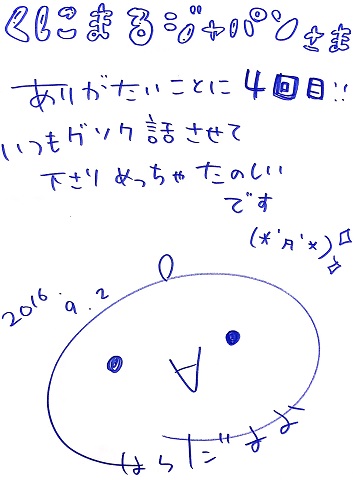 くしこまるジャパンさま
ありがたいことに4回目!!
いつもゲソク話させて
下さりめっちゃたのしい
です
(*'д'*)
2016.9.2
はらだまよ